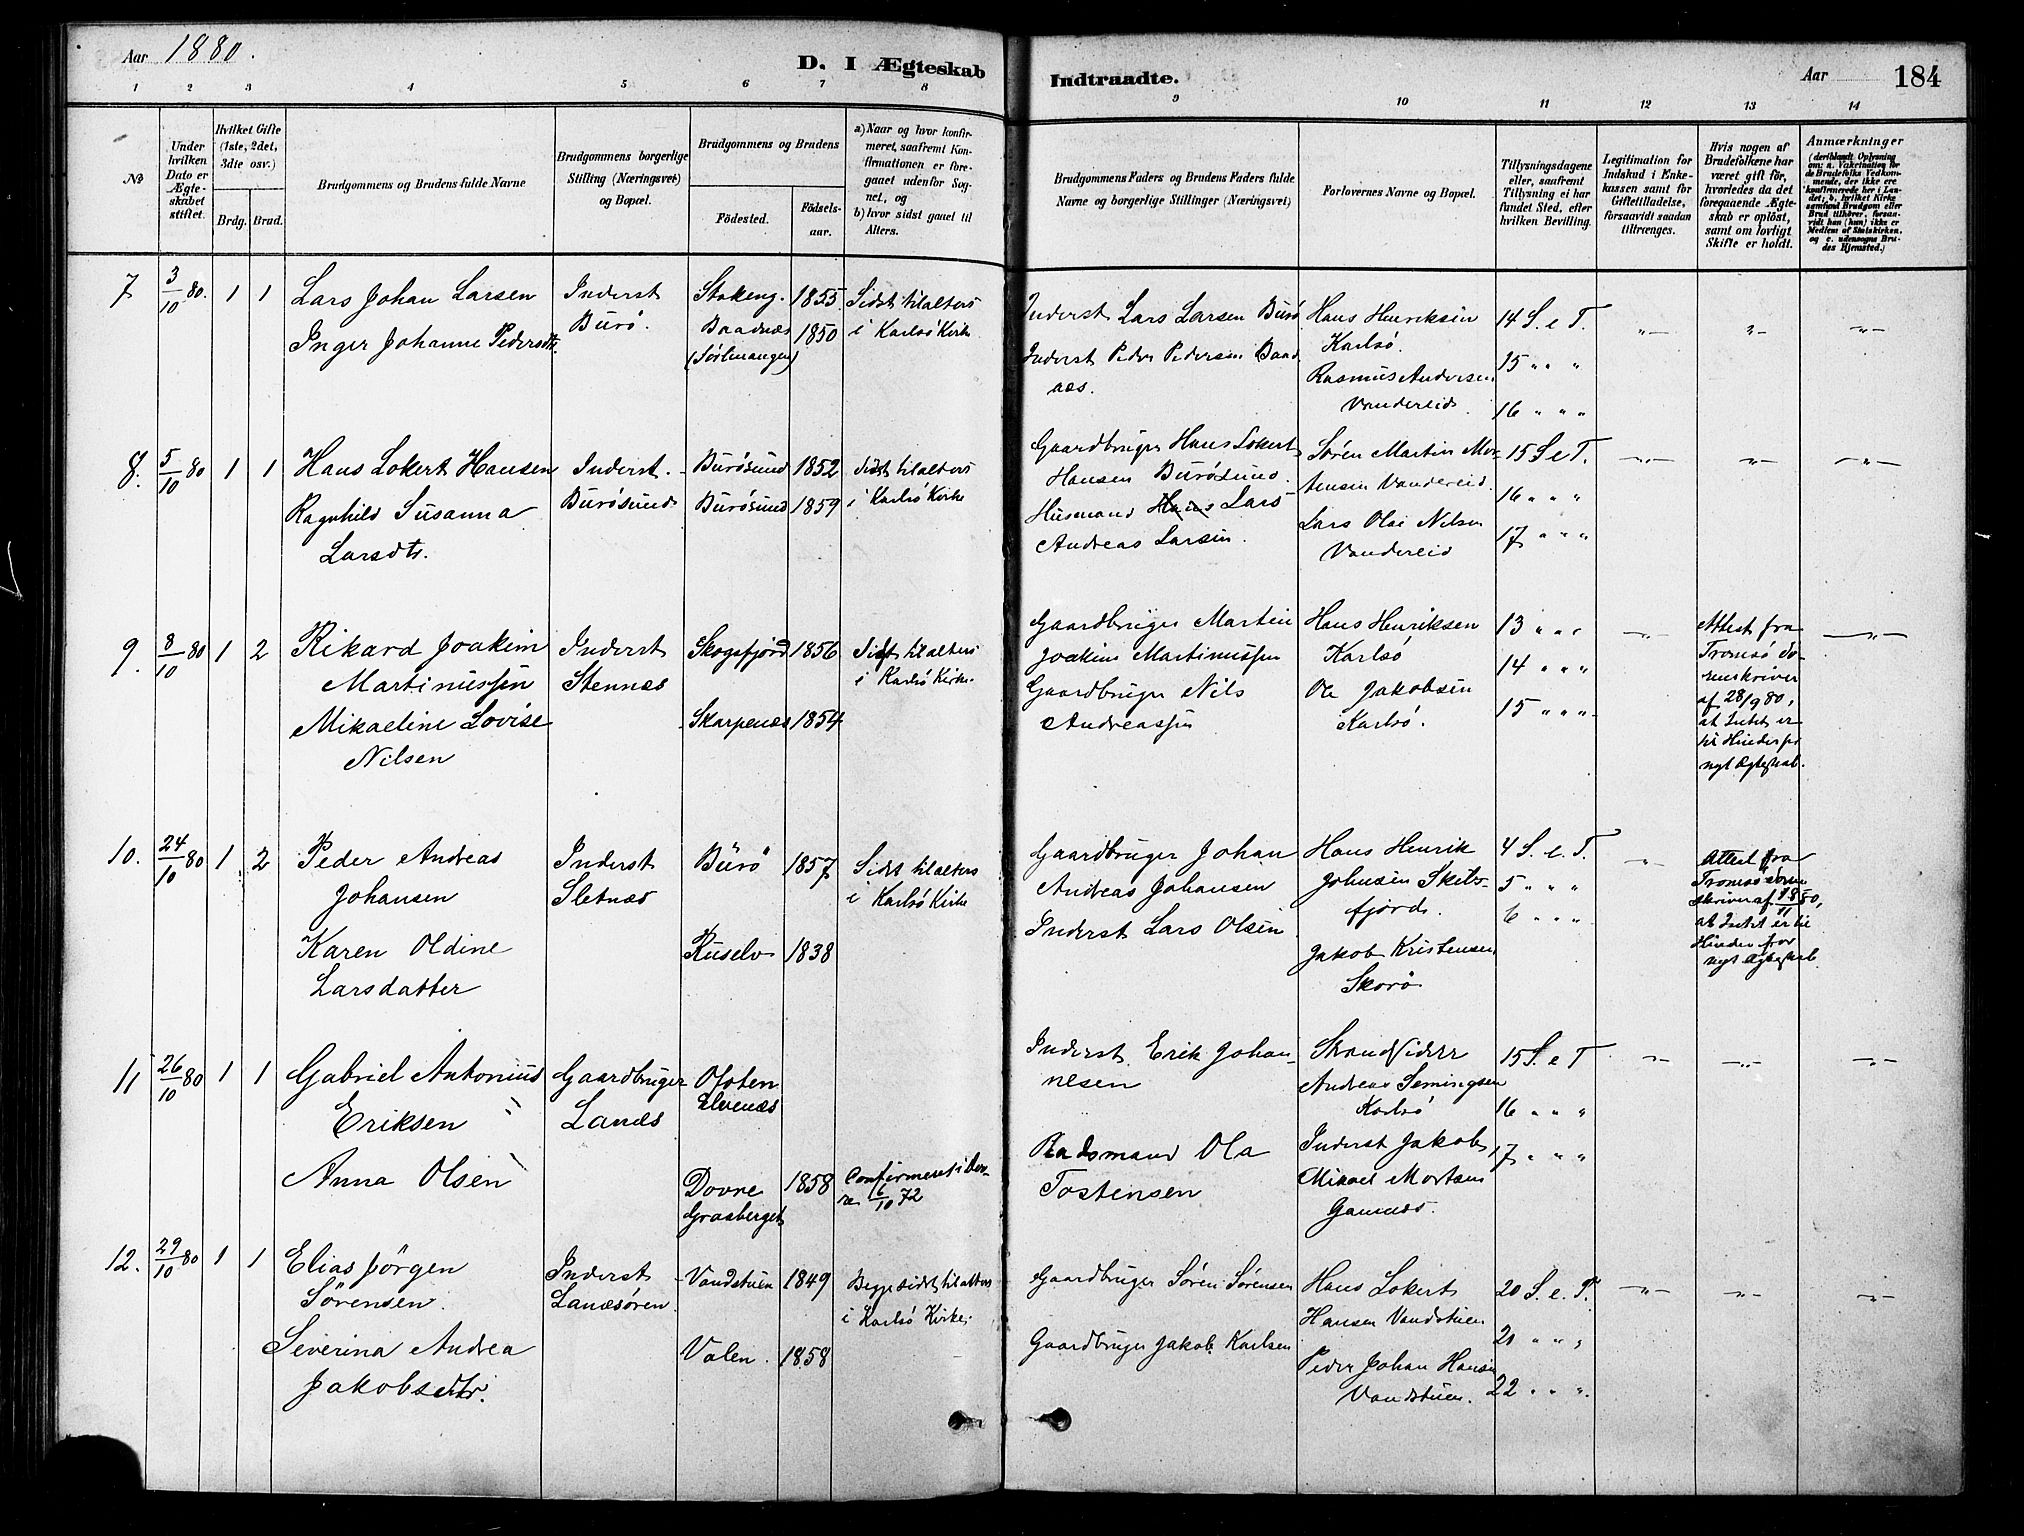 Aar 1880.
D. I Ægteskab
Indtraadte.
Aar
184
1 2 3 4 5 6 7 8
9 10 11 12 13 14
No
Under hvilken Dato er Ægteskabet stiftet.
Hvilket Gifte (1ste, 2det, 3die osv.)
Brdg. Brud.
Brudgommens og Brudens fulde Navne
Brudgommens borgerlige Stilling (Næringsvei) og Bopæl.
Brudgommens og Brudens
Födested.
Födselsaar.
a) Naar og hvor konfirmeret, saafremt Konfirmationen er foregaaet udenfor Sognet, og
b) hvor sidst gaaet til Alters.
Brudgommens Faders og Brudens Faders fulde Navne og borgerlige Stillinger (Næringsvei)
Forlovernes Navne og Bopæl.
Tillysningsdagene eller, saafremt Tillysning ei har fundet Sted, efter hvilken Bevilling.
Legitimation for Indskud i Enkekassen samt for Giftetilladelse, forsaavidt saadan tiltrænges.
Hvis nogen af Brudefolkene har været gift för, hvorledes da det foregaaende Ægteskab er oplöst, samt om lovligt Skifte er holdt.
Anmærkninger
(deriblandt Oplysning om: a. Vakcination for de Brudefolks Vedkommende, der ikke ere konfirmerede her i Landet; b. hvilket Kirkesamfund Brudgom eller Brud tilhörer, forsaavidt han (hun) ikke er Medlem af Statskirken, og c. udensogns Brudes Hjemsted.)
7 3/10 80. 1 1
Lars Johan Larsen
Inger Johanne Pedersdtr.
Inderst
Burö.
Stakeng. 1855
Baadnæs 1850
(Sörlenangen)
Sidst tilalters
i Karlsö Kirke
Inderst Lars Larsen Burö
Inderst Peder Pedersen Baadnæs.
Hans Henriksen
Karlsö.
Rasmus Andersen
Vandereid.
14 S. e T.
15 " " "
16 " " "
8. 5/10 80 1 1
Hans Lokert Hansen
Ragnhild Susanna
Larsdtr.
Inderst.
Burösund
Burösund 1852
Burösund 1859
Sidst tilalters
i Karlsö Kirke
Gaardbruger Hans Lokert
Hansen Burösund.
Husmand Hans Lars
Andreas Larsen.
Sören Martin Mortensen Vandereid
Lars Olai Nilsen
Vandereid
15 S e T.
16 " " "
17 " " "
9. 8/10 80 1 2
Rikard Joakim
Martinussen
Mikaeline Lovise
Nilsen
Inderst
Stennæs
Skogsfjord 1856
Skarpenæs 1854
Sidst tilalters
i Karlsö Kirke.
Gaardbruger Martin
Joakim Martinussen
Gaardbruger Nils
Andreassen
Hans Henriksen
Karlsö
Ole Jakobsen
Karlsö.
13 " " "
14 " " "
15 " " "
Attest fra
Tromsö Sorenskriver
af 28/9 80,
at Intet er
til Hinder for
nyt Ægteskab.
10. 24/10 80 1 2
Peder Andreas
Johansen
Karen Oldine
Larsdatter
Inderst
Sletnæs
Burö 1857
Ruselv 1838
Sidst tilalters
i Karlsö Kirke
Gaardbruger Johan
Andreas Johansen
Inderst Lars Olsen
Hans Henrik
Johnsen Skibsfjord.
Jakob Kristensen
Skorö
4 S. e. T.
5 " " "
6 " " "
Attest fra
Tromsö Sorenskriver af
at Intet er til
Hinder for
nyt Ægteskab
11 26/10 80 1 1
Gabriel Antonius
Eriksen
Anna Olsen
Gaardbruger
Lanæs
Ofoten
Elvenæs
Dovre 1858
Graaberget
Confirmeret i Dovre 6/10 72
Inderst Erik Johannesen
Baadsmand Ola
Tostensen
Strandsidder
Andreas Semingsen
Karlsö
Inderst Jakob
Mikael Mortensen
Gamnæs.
15 S. e T
16 " " "
17 " " "
12. 29/10 80 1 1
Elias Jörgen
Sörensen.
Severina Andrea
Jakobsdtr.
Inderst
Lanæsören.
Vandstuen 1849
Valen. 1858
Begge sidst tilalters
i Karlsö Kirke.
Gaardbruger Sören Sörensen
Gaardbruger Jakob Karlsen
Hans Lokert
Hansen Vandstuen
Peder Johan Hansen
Vandstuen.
20 S. e. T.
21 " " "
22 " " "